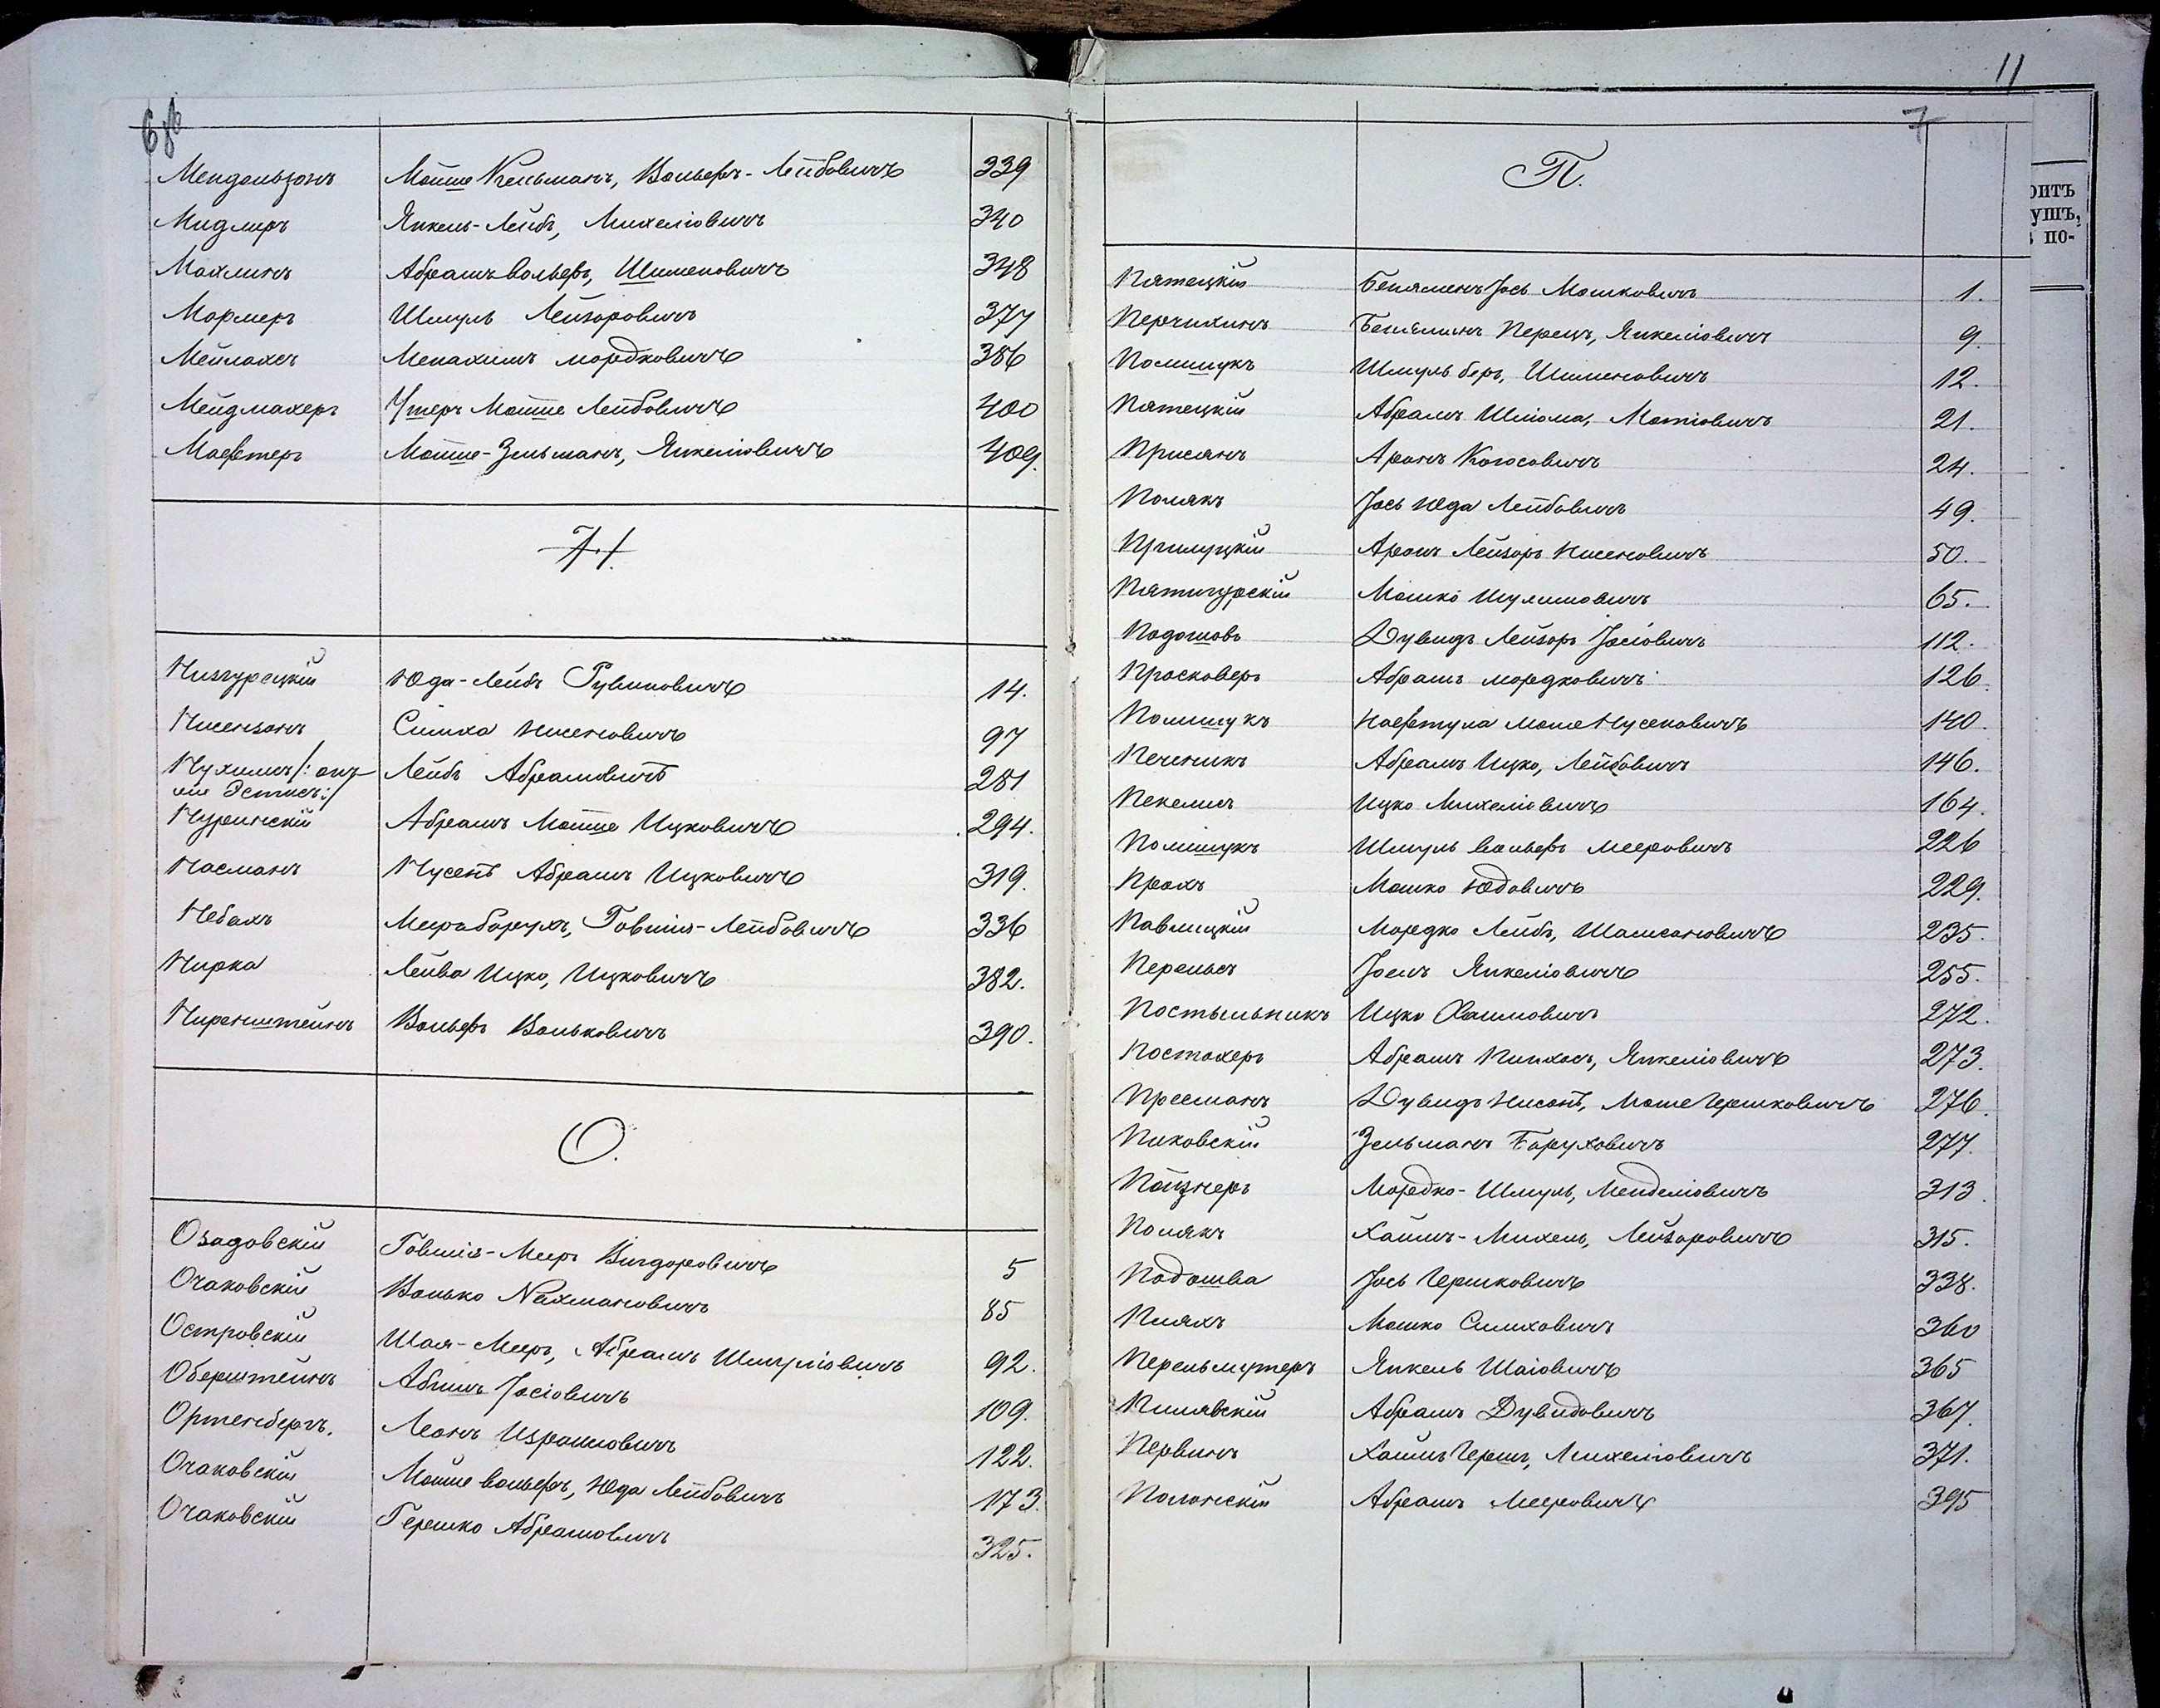 Мендельзонъ Мойше Кельманъ, Вольфъ-Лейбовичъ 339
Мидлеръ Янкель-Лейбъ, Михеліовичъ 340
Махлинъ Абрамъ Вольфъ, Шименовичъ 348
Мармеръ Шмуль Лейзоровичъ 377
Мейлахсъ Менахимъ Мордковичъ 386
Мейдмахеръ Ушеръ Мойше Лейбовичъ 400
Мафтеръ Мойше-Зельманъ, Янкеліовичъ 409.
Н.
Низгурецкій Юда-Лейбъ Рувиновичъ 14.
Нисензонъ Симха Нисеновичъ 97
Нухимъ /: онъ Лейбъ Абрамовичъ 281
же Эстисъ:/
Нуринскій Абрамъ Мойше Ицковичъ 294.
Насманъ Нусенъ Абрамъ Ицковичъ 319.
Небахъ Меръ Борухъ, Говшія-Лейбовичъ 336
Нирка Лейва Ицко, Ицковичъ 382.
Ниренштейнъ Вольфъ Вольковичъ 390.
О.
Озадовскій Говшія-Меръ Вигдоровичъ 5
Очаковскій Волько Нахмановичъ 85
Островскій Шая-Меръ, Абрамъ Шмуліовичъ 92.
Оберштейнъ Абишъ Іосіовичъ 109.
Ортенбергъ. Леонъ Израиловичъ 122.
Очаковскій Мойше Вольфъ, Юда Лейбовичъ 173.
Очаковскій Гершко Абрамовичъ 325.
11
7
П.
Пятецкій Беняменъ Іось Мошковичъ 1.
Перчихинъ Беняминъ Перецъ, Янкеліовичъ 9.
Полищукъ Шмуль Беръ, Шименовичъ 12.
Пятецкій Абрамъ Шліома, Мотіовичъ 21.
Присянъ Аронъ Когосовичъ 24.
Полякъ Іось Юда Лейбовичъ 49.
Прилуцкій Аронъ Лейзоръ Нисеновичъ 50.
Пятигурскій Мошко Шулимовичъ 65.
Подошовъ Дувидъ Лейзоръ Іосіовичъ 112.
Просковеръ Абрамъ Мордковичъ 126.
Полищукъ Нафтула Моше Нусеновичъ 140.
Печеникъ Абрамъ Ицко, Лейбовичъ 146.
Пекелисъ Ицко Михеліовичъ 164.
Полищукъ Шмуль Вольфъ Мееровичъ 226
Прахъ Мошко Юдовичъ 229.
Павлицкій Мордко Лейбъ, Шамсоновичъ 235.
Перельсъ Іоель Янкеліовичъ 255.
Постыльникъ Ицко Хаимовичъ 272.
Постохеръ Абрамъ Пинхосъ, Янкеліовичъ 273.
Пресманъ Дувидъ Нисонъ, Моше Гершковичъ 276.
Пиковскій Зельманъ Боруховичъ 277.
Пойзнеръ Мордко-Шмуль, Менделіовичъ 313.
Полякъ Хаимъ-Михель, Лейзоровичъ 315.
Подошва Іось Гершковичъ 338.
Пиляхъ Мошко Симховичъ 360
Перельмутеръ Янкель Шаіовичъ 365
Пилявскій Абрамъ Дувидовичъ 367.
Первинъ Хаимъ Гершъ, Михеліовичъ 371.
Полонскій Абрамъ Мееровичъ 395
оитъ
ушъ,
по-